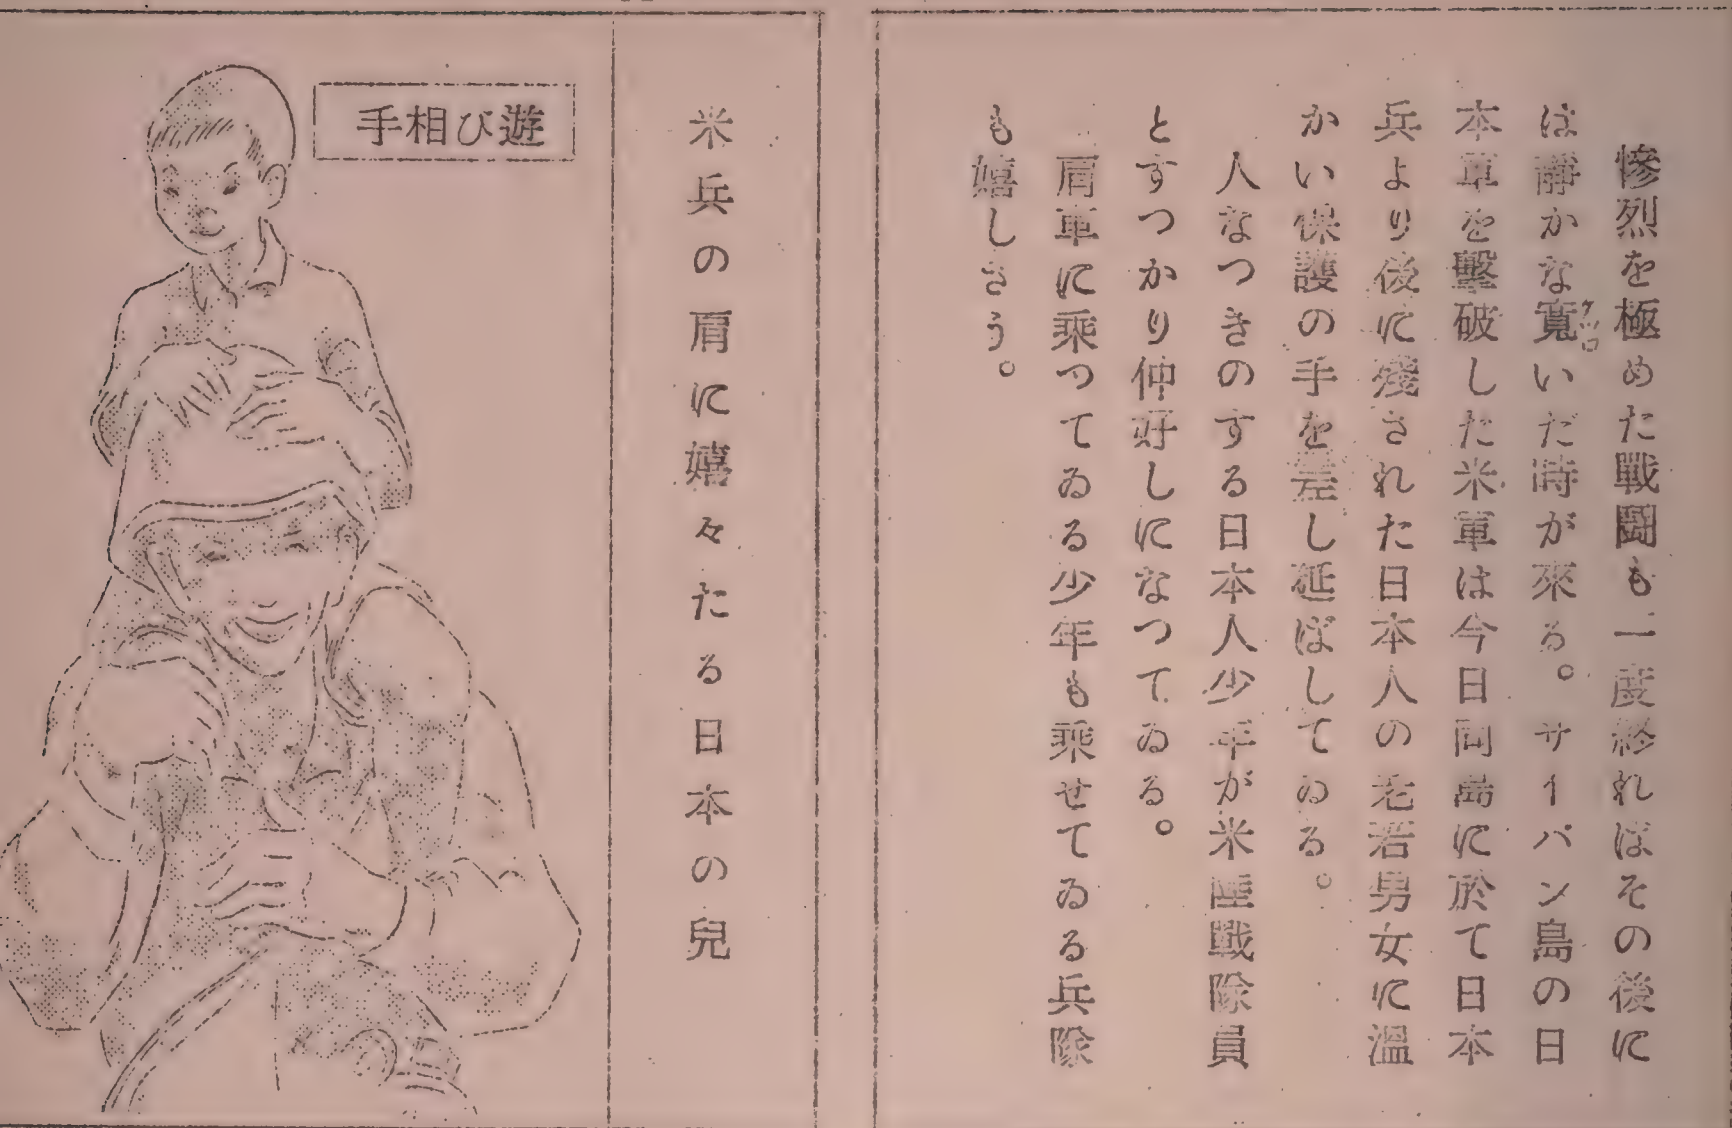 惨烈を極めた戰鬪も一度終ればその後に
は靜かな寬いだ時が來る。サイパン島の日
本軍を擊破した米軍は今日同島に於て日本
兵より後に殘された日本人の老若男女に溫
かい保護の手を差し延ばしてゐる。
人なつきのする日本人少年が米陸戰隊員
とすつかり仲好しになつてゐる。
肩車に乘つてゐる少年も乘せてゐる兵隊
も嬉しさう。
米兵の肩に嬉々たる日本の兒
手相び遊